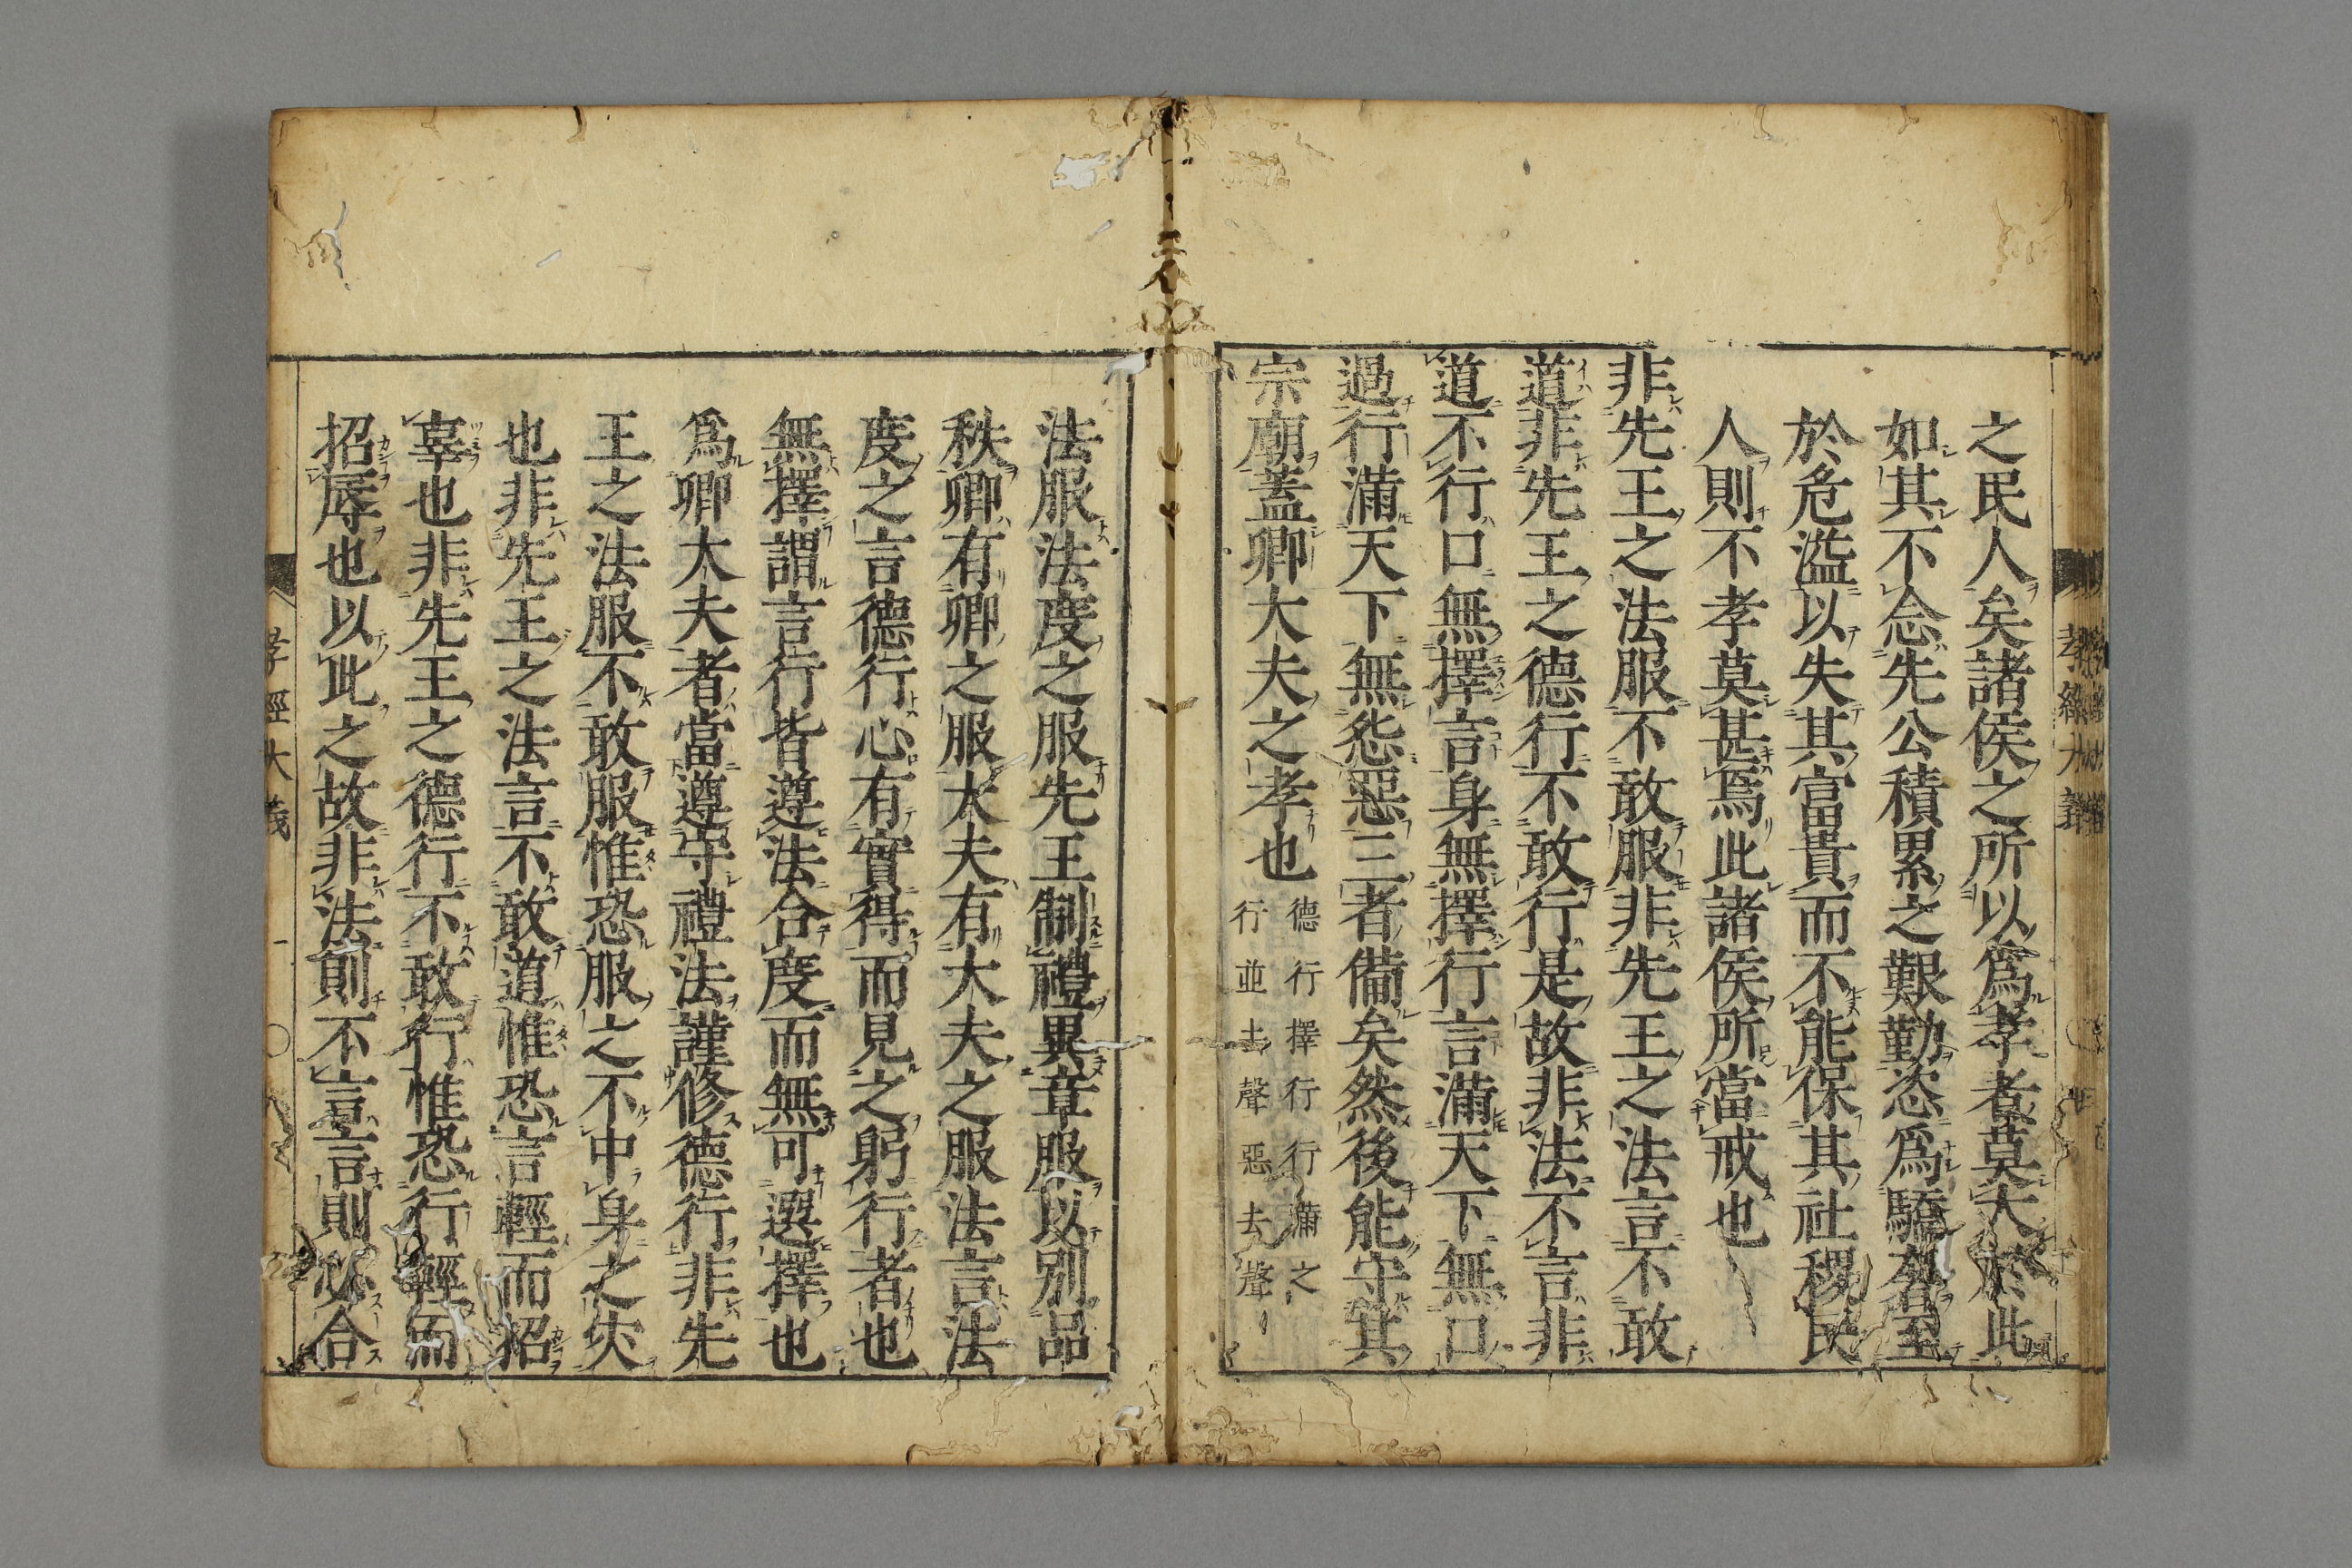 之民人矣諸侯之所以爲孝者莫大於此
如其不念先公積累之艱勤恣爲驕奢至
於危溢以失其富貴而不能保其社稷民
人則不孝莫甚焉此諸侯所當戒也
非先王之法服不敢服非先王之法言不敢
道非先王之德行不敢行是故非法不言非
道不行口無擇言身無擇行言滿天下無口
過行滿天下無怨惡三者備矣然後能守其
宗廟蓋卿大夫之孝也
德行擇行行滿之
行並去聲惡去聲
法服法度之服先王制禮異章服以別品
秩卿有卿之服大夫有大夫之服法言法
度之言德行心有實得而見之躬行者也
無擇謂言行皆遵法合度而無可選擇也
爲卿大夫者當遵守禮法謹修德行非先
王之法服不敢服惟恐服之不中身之灾
也非先王之法言不敢道惟恐言輕而招
辜也非先王之德行不敢行惟恐行輕而
招辱也以此之故非法則不言言則必合
孝經大義